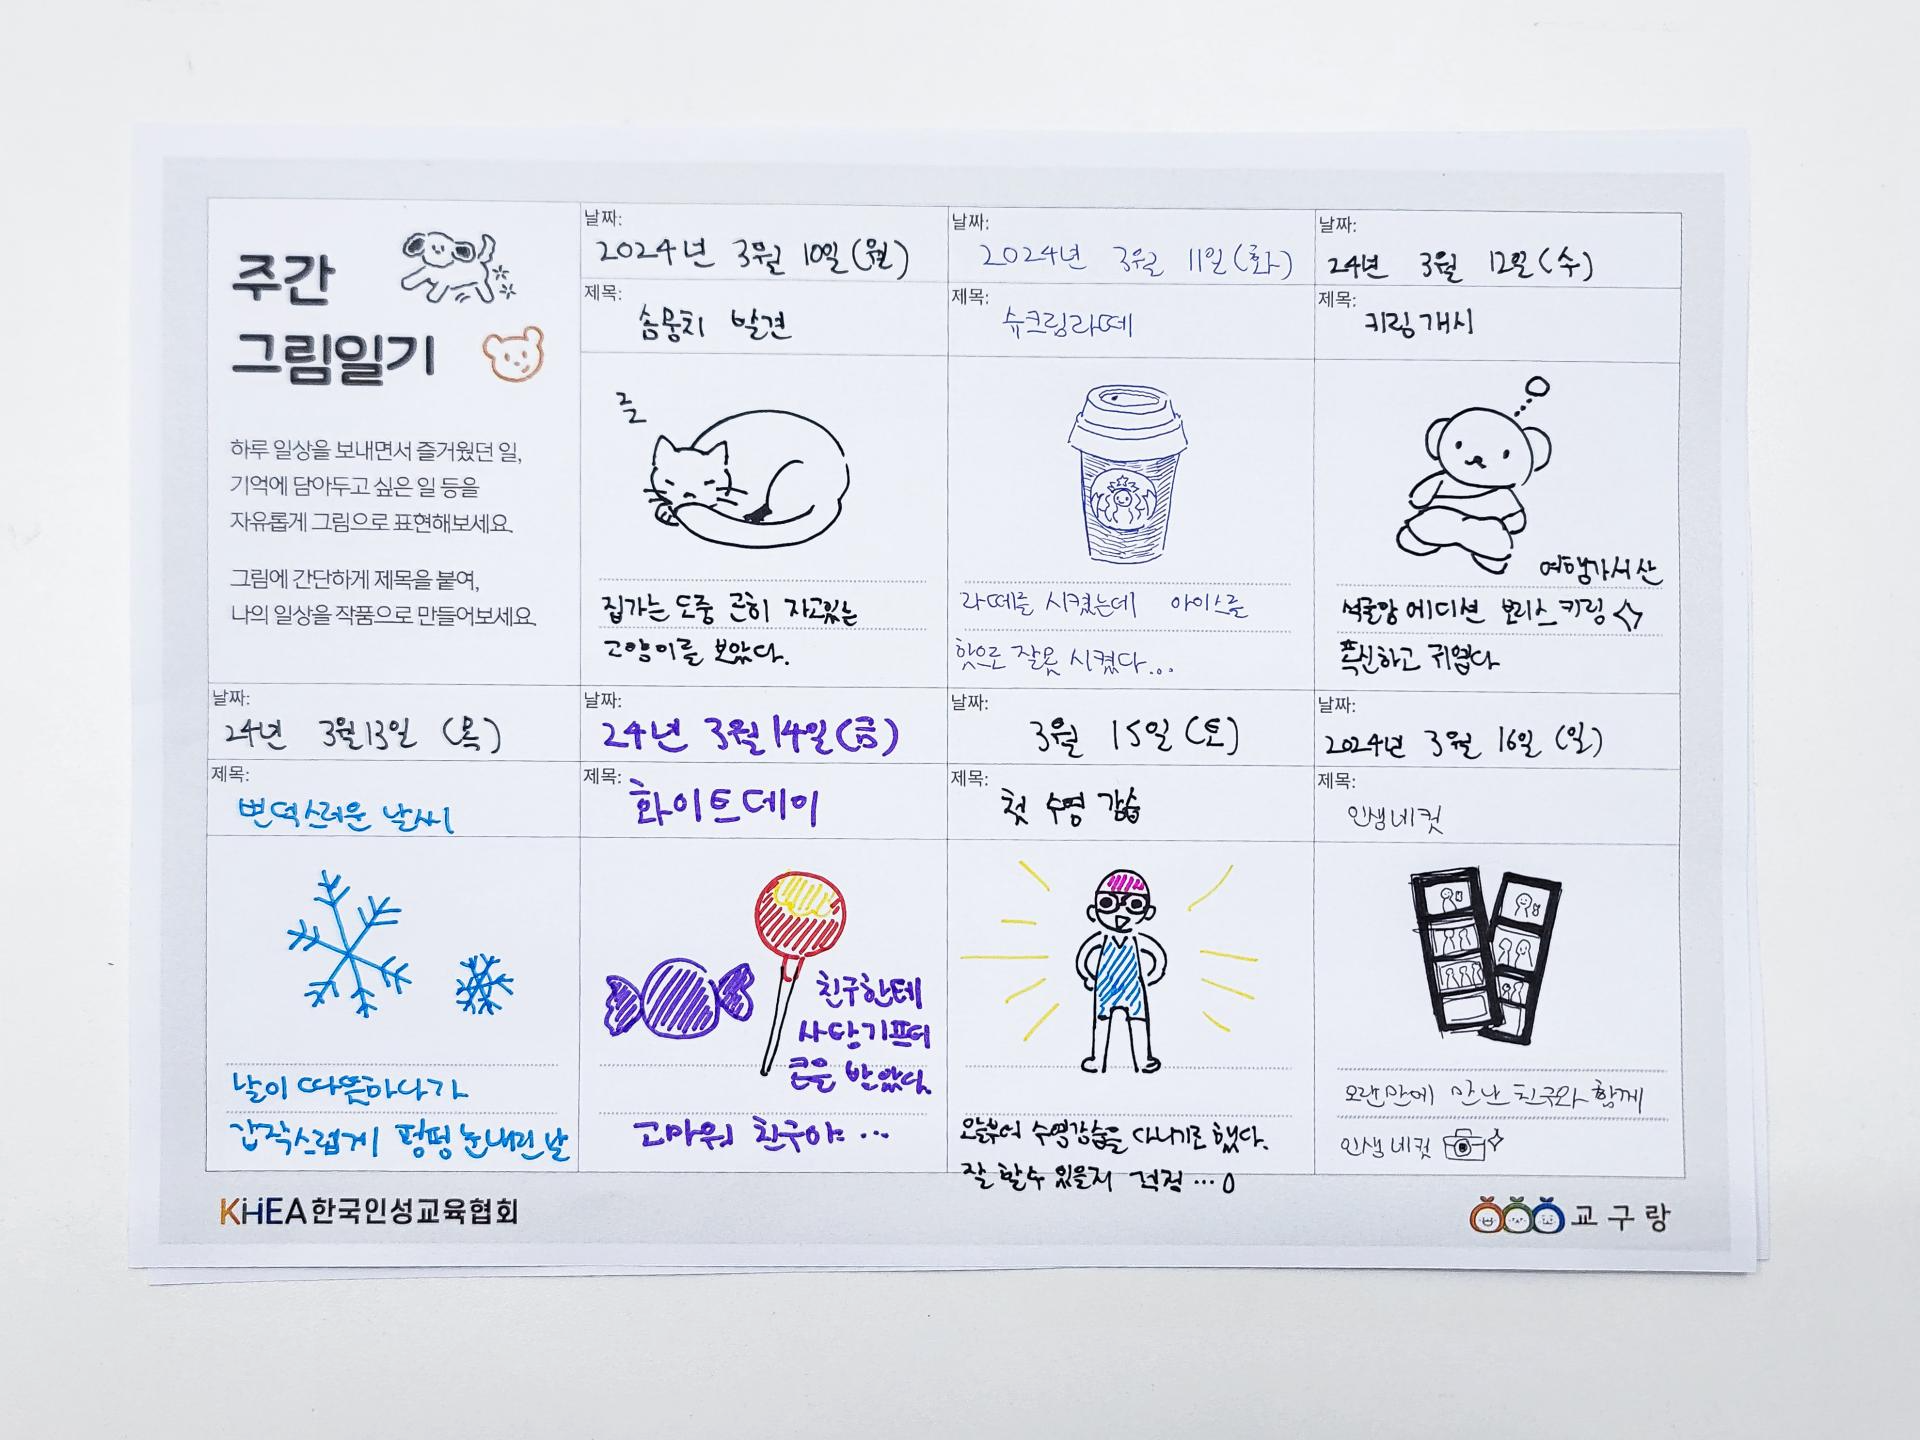 주간
그림일기
하루 일상을 보내면서 즐거웠던 일,
기억에 담아두고 싶은 일 등을
자유롭게 그림으로 표현해보세요.
그림에 간단하게 제목을 붙여,
나의 일상을 작품으로 만들어보세요.
날짜:
2024년 3월 10일(월)
제목:
솜뭉치 발견
집가는 도중 곤히 자고있는
고양이를 보았다.
날짜:
2024년 3월 11일(화)
제목:
슈크림라떼
라떼를 시켰는데 아이스를
핫으로 잘못 시켰다...
날짜:
24년 3월 12일(수)
제목:
키링개시
여행가서 산
석굴암 에디션 보리스 키링
푹신하고 귀엽다
날짜:
24년 3월13일 (목)
제목:
변덕스러운 날씨
날이 따뜻하다가
갑작스럽게 펑펑 눈내린 날
날짜:
24년 3월 14일(금)
제목:
화이트데이
친구한테
사탕기프티
콘을 받았다.
고마워 친구야...
날짜:
3월 15일(토)
제목:
첫 수영 강습
오늘부터 수영강습을 다니기로 했다.
잘 할수 있을지 걱정...
날짜:
2024년 3월 16일 (일)
제목:
인생네컷
오랜만에 만난 친구와 함께
인생네컷
KHEA한국인성교육협회
교구랑